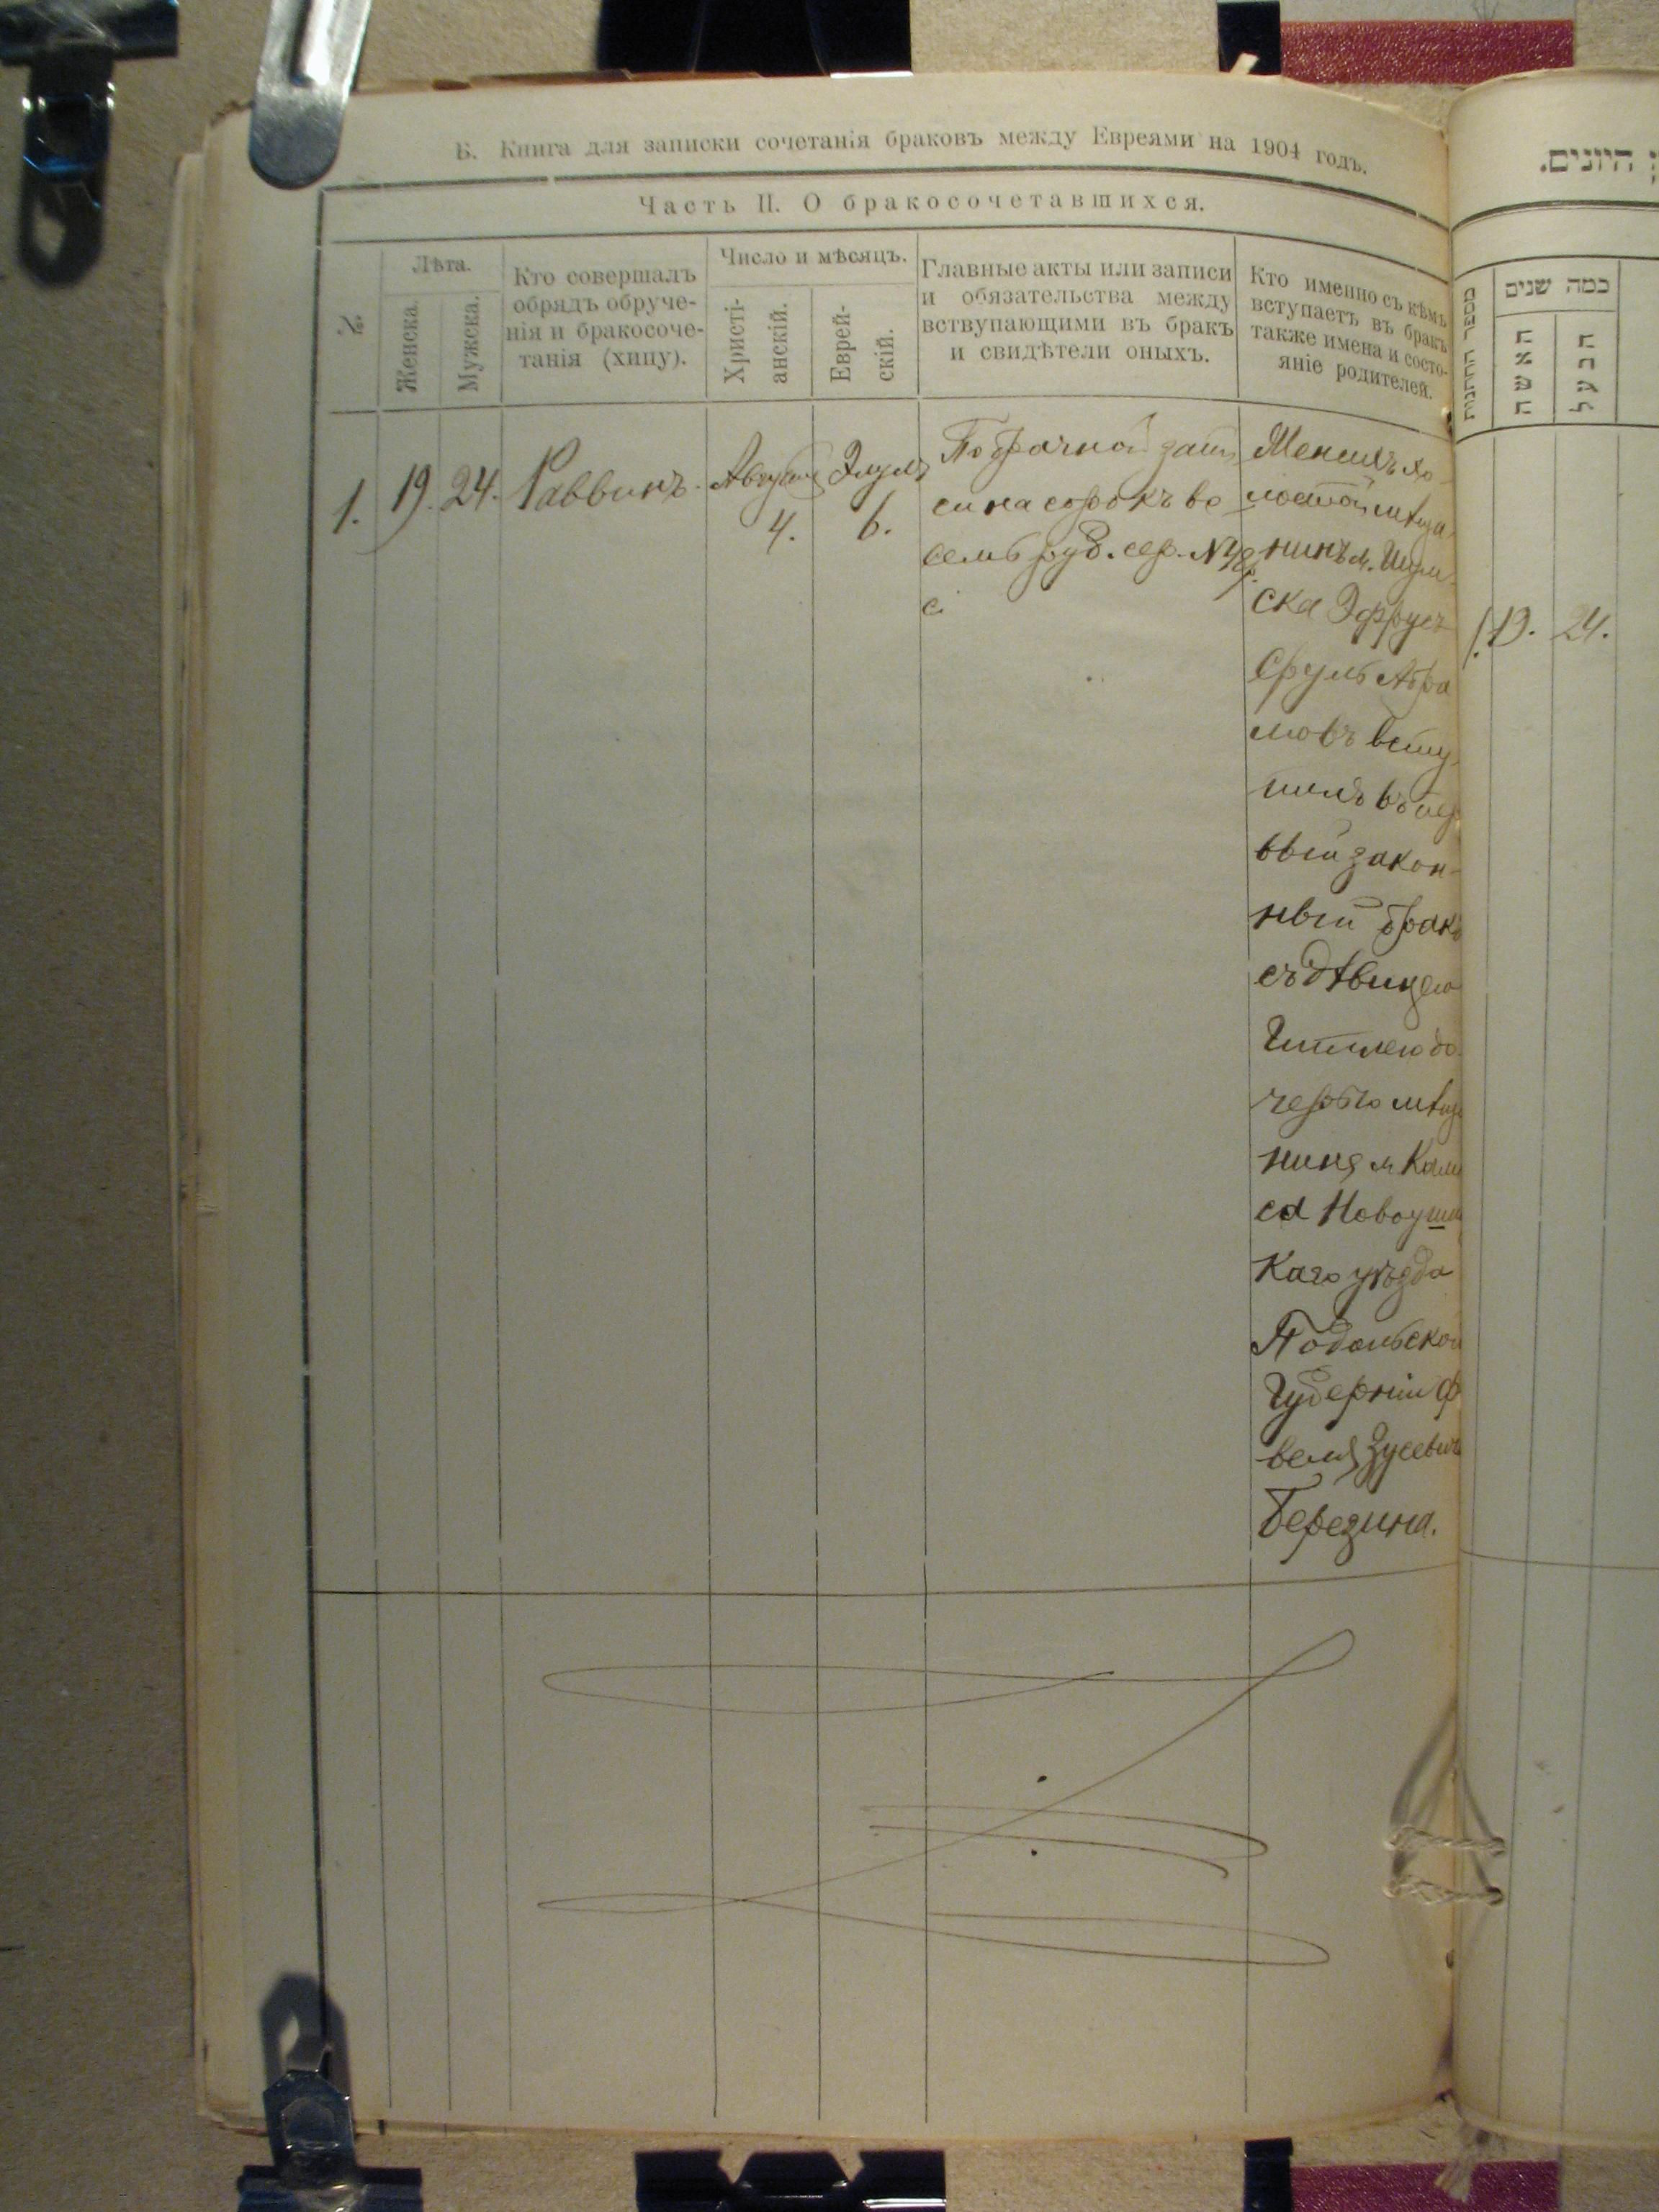 Б. Книга для записки сочетанія браковъ между Евреями на 1904 годъ.
Часть II. О бракосочетавшихся.
№.
Лѣта.
Женска.
Мужска.
Кто совершалъ
обрядъ обруче-
нія и бракосоче-
танія (хипу).
Число и мѣсяцъ.
Христі-
анскій.
Еврей-
скій.
Главные акты или записи
и обязательства между
вствупающими въ бракъ
и свидѣтели оныхъ.
Кто именно съ кѣмъ
вступаетъ въ бракъ
также имена и состо-
яніе родителей.
1.
19.
24.
Раввинъ.
Августъ
4.
Элулъ
6.
По брачной запи
си на сорокъ во
семь руб. сер. № 48 р.
с
хо
лостой мѣща
нинъ м. Шум
ска Эфрусъ
Сруль Абра
мовъ всту
пилъ въ пер
вый закон-
ный бракъ
съ дѣвицею
Гитлею до
черью мѣща
нина м Калю
са Новоушиц
каго уѣзда
Подольской
Губерніи Ф
веля Зусевич
Березина.
ן היונים.
מספר החתונות
כמה שנים
האשה
הבעל
1.
19.
24.